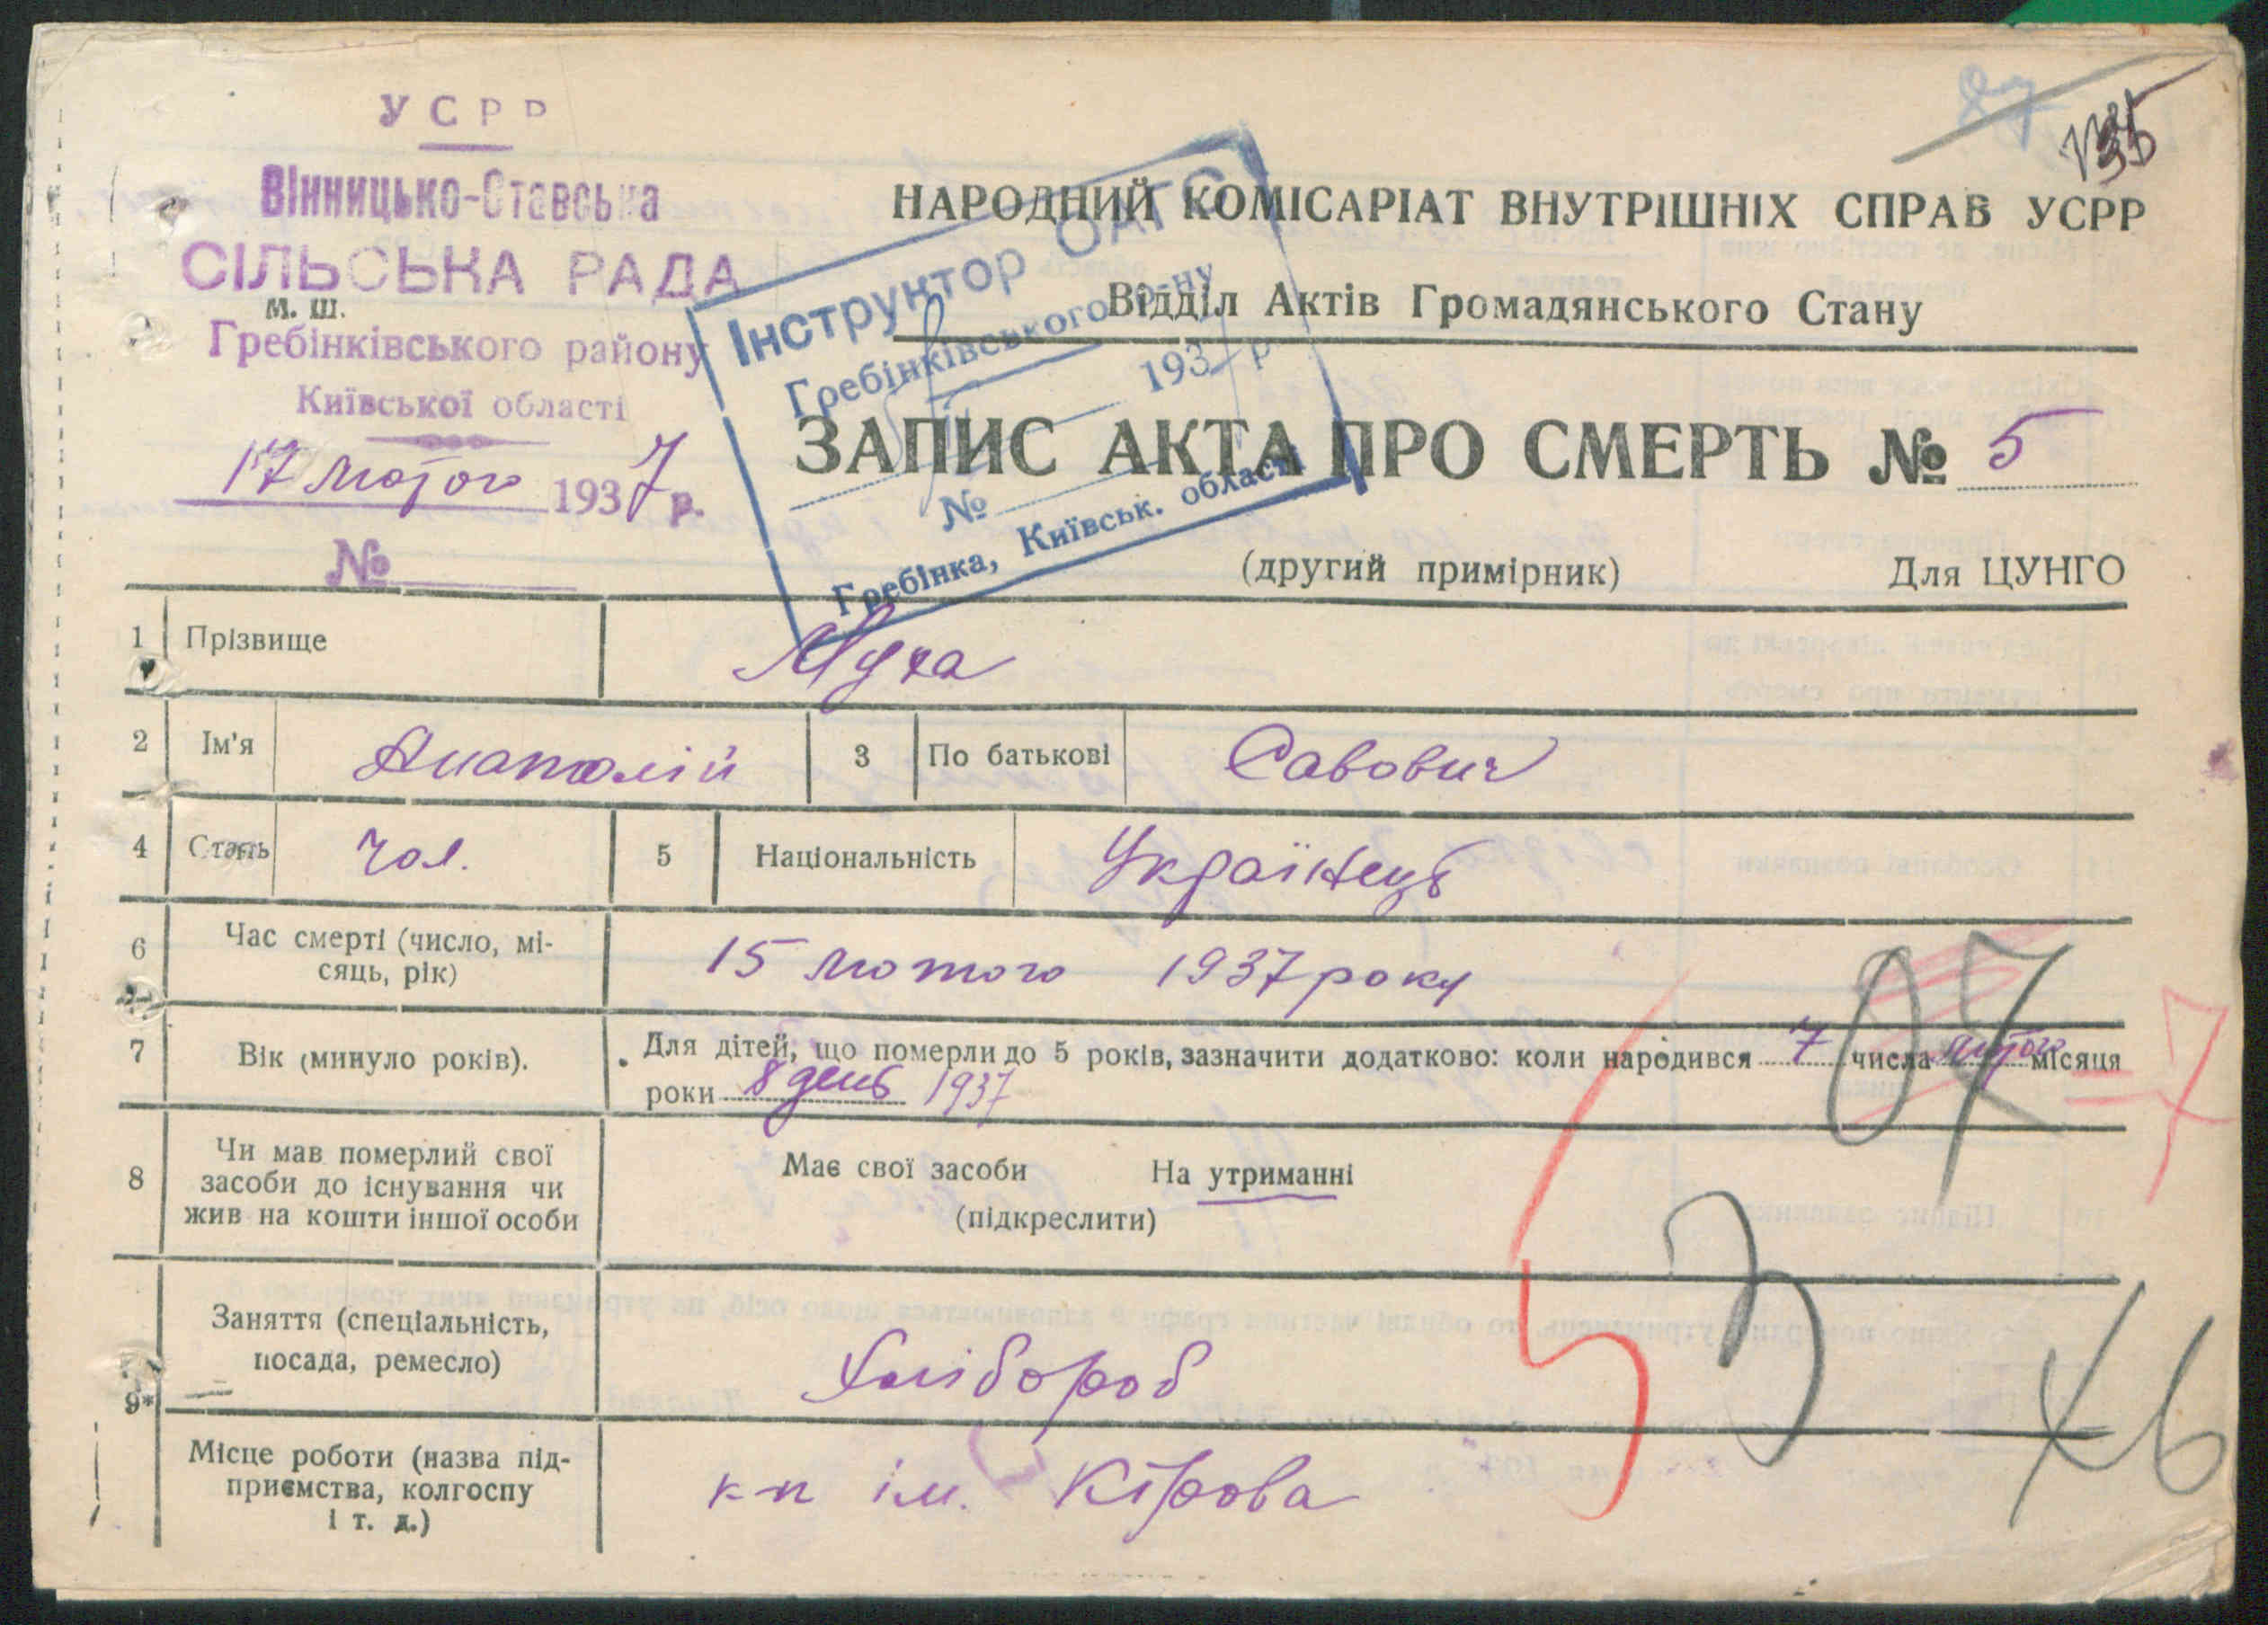 УСРР
Вінницько-Ставська
СІЛЬСЬКА РАДА
м. ш.
Гребінківського району
Київської області
17 лютого 1937 р.
№
Інструктор ОАГС
Гребінківського р-ну
193 р
№
Гребінка, Київськ. області
НАРОДНИЙ КОМІСАРІАТ ВНУТРІШНІХ СПРАВ УСРР
Відділ Актів Громадянського Стану
ЗАПИС АКТА ПРО СМЕРТЬ № 5
(другий примірник) Для ЦУНГО
1 Прізвище Муха
2 Ім'я Анатолій 3 По батькові Савович
4 Стать чол. 5 Національність Українець
6 Час смерті (число, мі-
сяць, рік) 15 лютого 1937 року
7 Вік (минуло років). Для дітей, що померли до 5 років, зазначити додатково: коли народився 7 числа лютого місяця
роки 8 день 1937
07
=7
8 Чи мав померлий свої
засоби до існування чи
жив на кошти іншої особи
Має свої засоби На утриманні
(підкреслити)
9* Заняття (спеціальність,
посада, ремесло) Хлібороб
Місце роботи (назва під-
приємства, колгоспу
і т. д.) к-п ім. Кірова